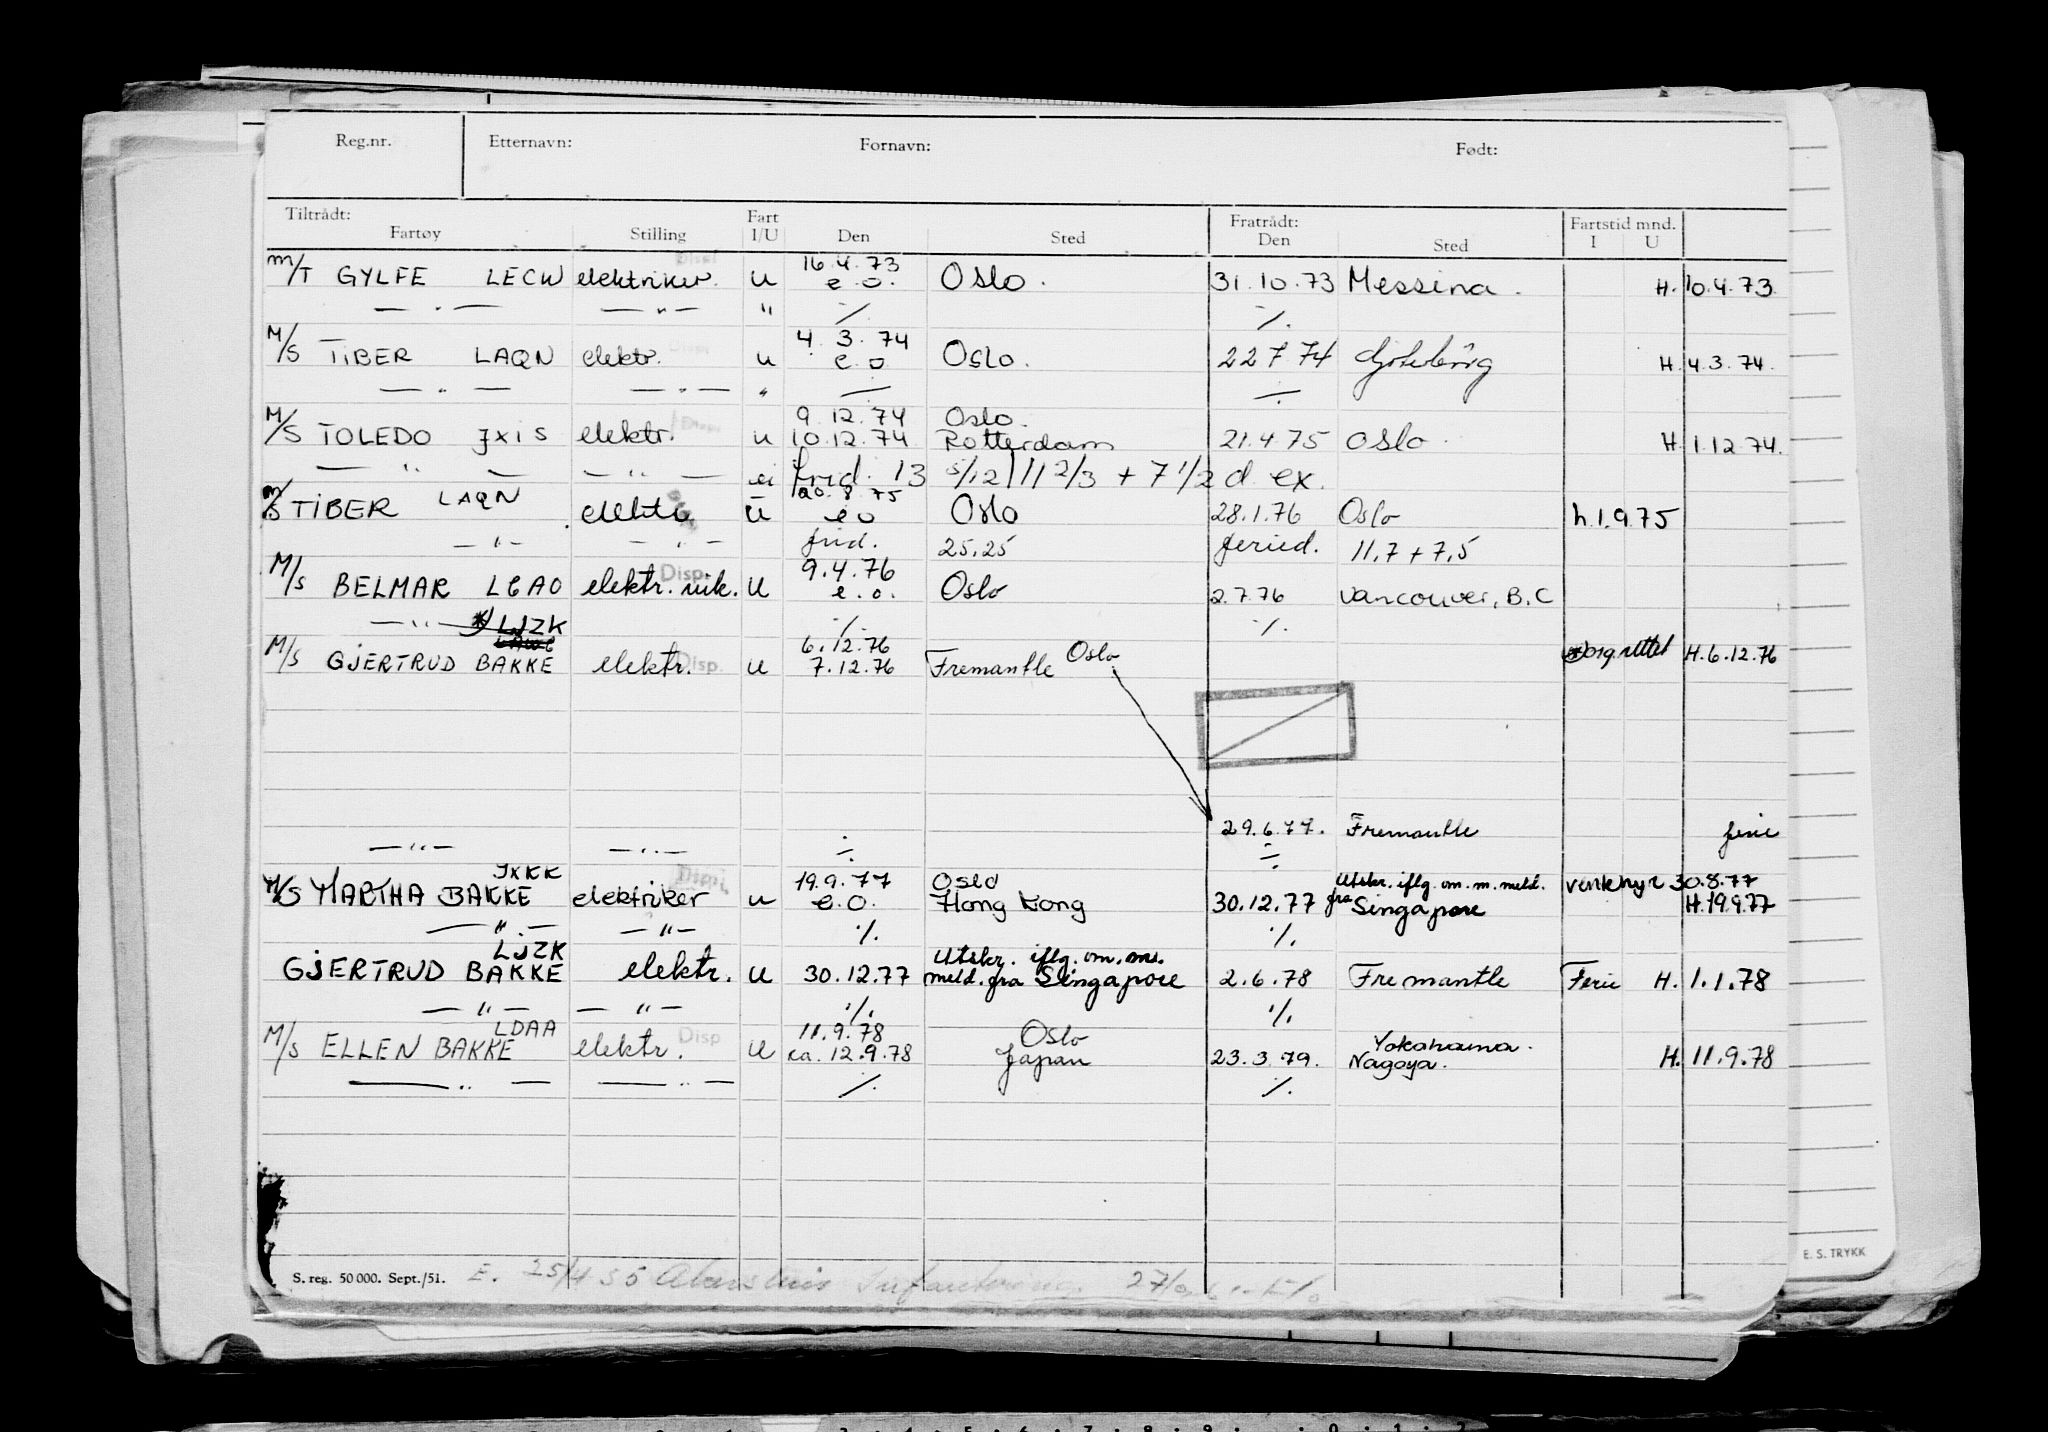 Reg.nr. Etternavn: Fornavn: Født:
Tiltrådt: Fart Fratrådt: Fartstid mnd.
Fartøy Stilling I/U Den Sted Den Sted I U
16.4.73
M/T GYLFE LECW elektriker. u e.o. Oslo. 31.10.73 Messina. H. 10.4.73
— " — — " — " ⁒ ⁒
4.3.74
M/S TIBER LAQN elektr. u e.o Oslo. 22 7 74 Göteborg H. 4.3.74.
— " — — " — " ⁒ ⁒
9.12.74 Oslo.
M/S TOLEDO JXIS elektr. u 10.12.74 Rotterdam 21.4.75 Oslo. H. 1.12.74.
— " — — " — frid. 13 5/12 11 2/3 + 7 1/2 d ex.
20.8.75
M/S TIBER LAQN elektr u e o Oslo 28.1.76 Oslo h.1.9.75
— " — — " — frid. 25.25 feried. 11,7 + 7,5
9.4.76 Disp.
M/S BELMAR LGAO elektr. vik. U e.o. Oslo 2.7.76 Vancouver, B.C
— " — *) LJZK ⁒ ⁒
6.12.76 Oslo
M/S GJERTRUD BAKKE elektr. Disp. u 7.12.76 Fremantle H.6.12.76
29.6.77. Fremantle ferie
— " — — " — ⁒ ⁒
JXKK 19.9.77 Oslo Utskr. iflg. om. m. meld. 30.8.77
M/S MARTHA BAKKE elektriker u e.o. Hong Kong 30.12.77 fra Singapore H.19.9.77
— " — — " — ⁒ ⁒
LJZK Utskr. iflg. om. ms.
GJERTRUD BAKKE elektr. u 30.12.77 meld. fra Singapore 2.6.78 Fremantle Ferie H. 1.1.78
— " — — " — ⁒ ⁒
LDAA Disp 11.9.78 Oslo Yokohama.
M/S ELLEN BAKKE elektr. u ca. 12.9.78 Japan 23.3.79. Nagoya. H. 11.9.78
— " — — " — ⁒ ⁒
S. reg. 50 000. Sept./51. E. 25/4 55 Akershus
E. S. TRYKK